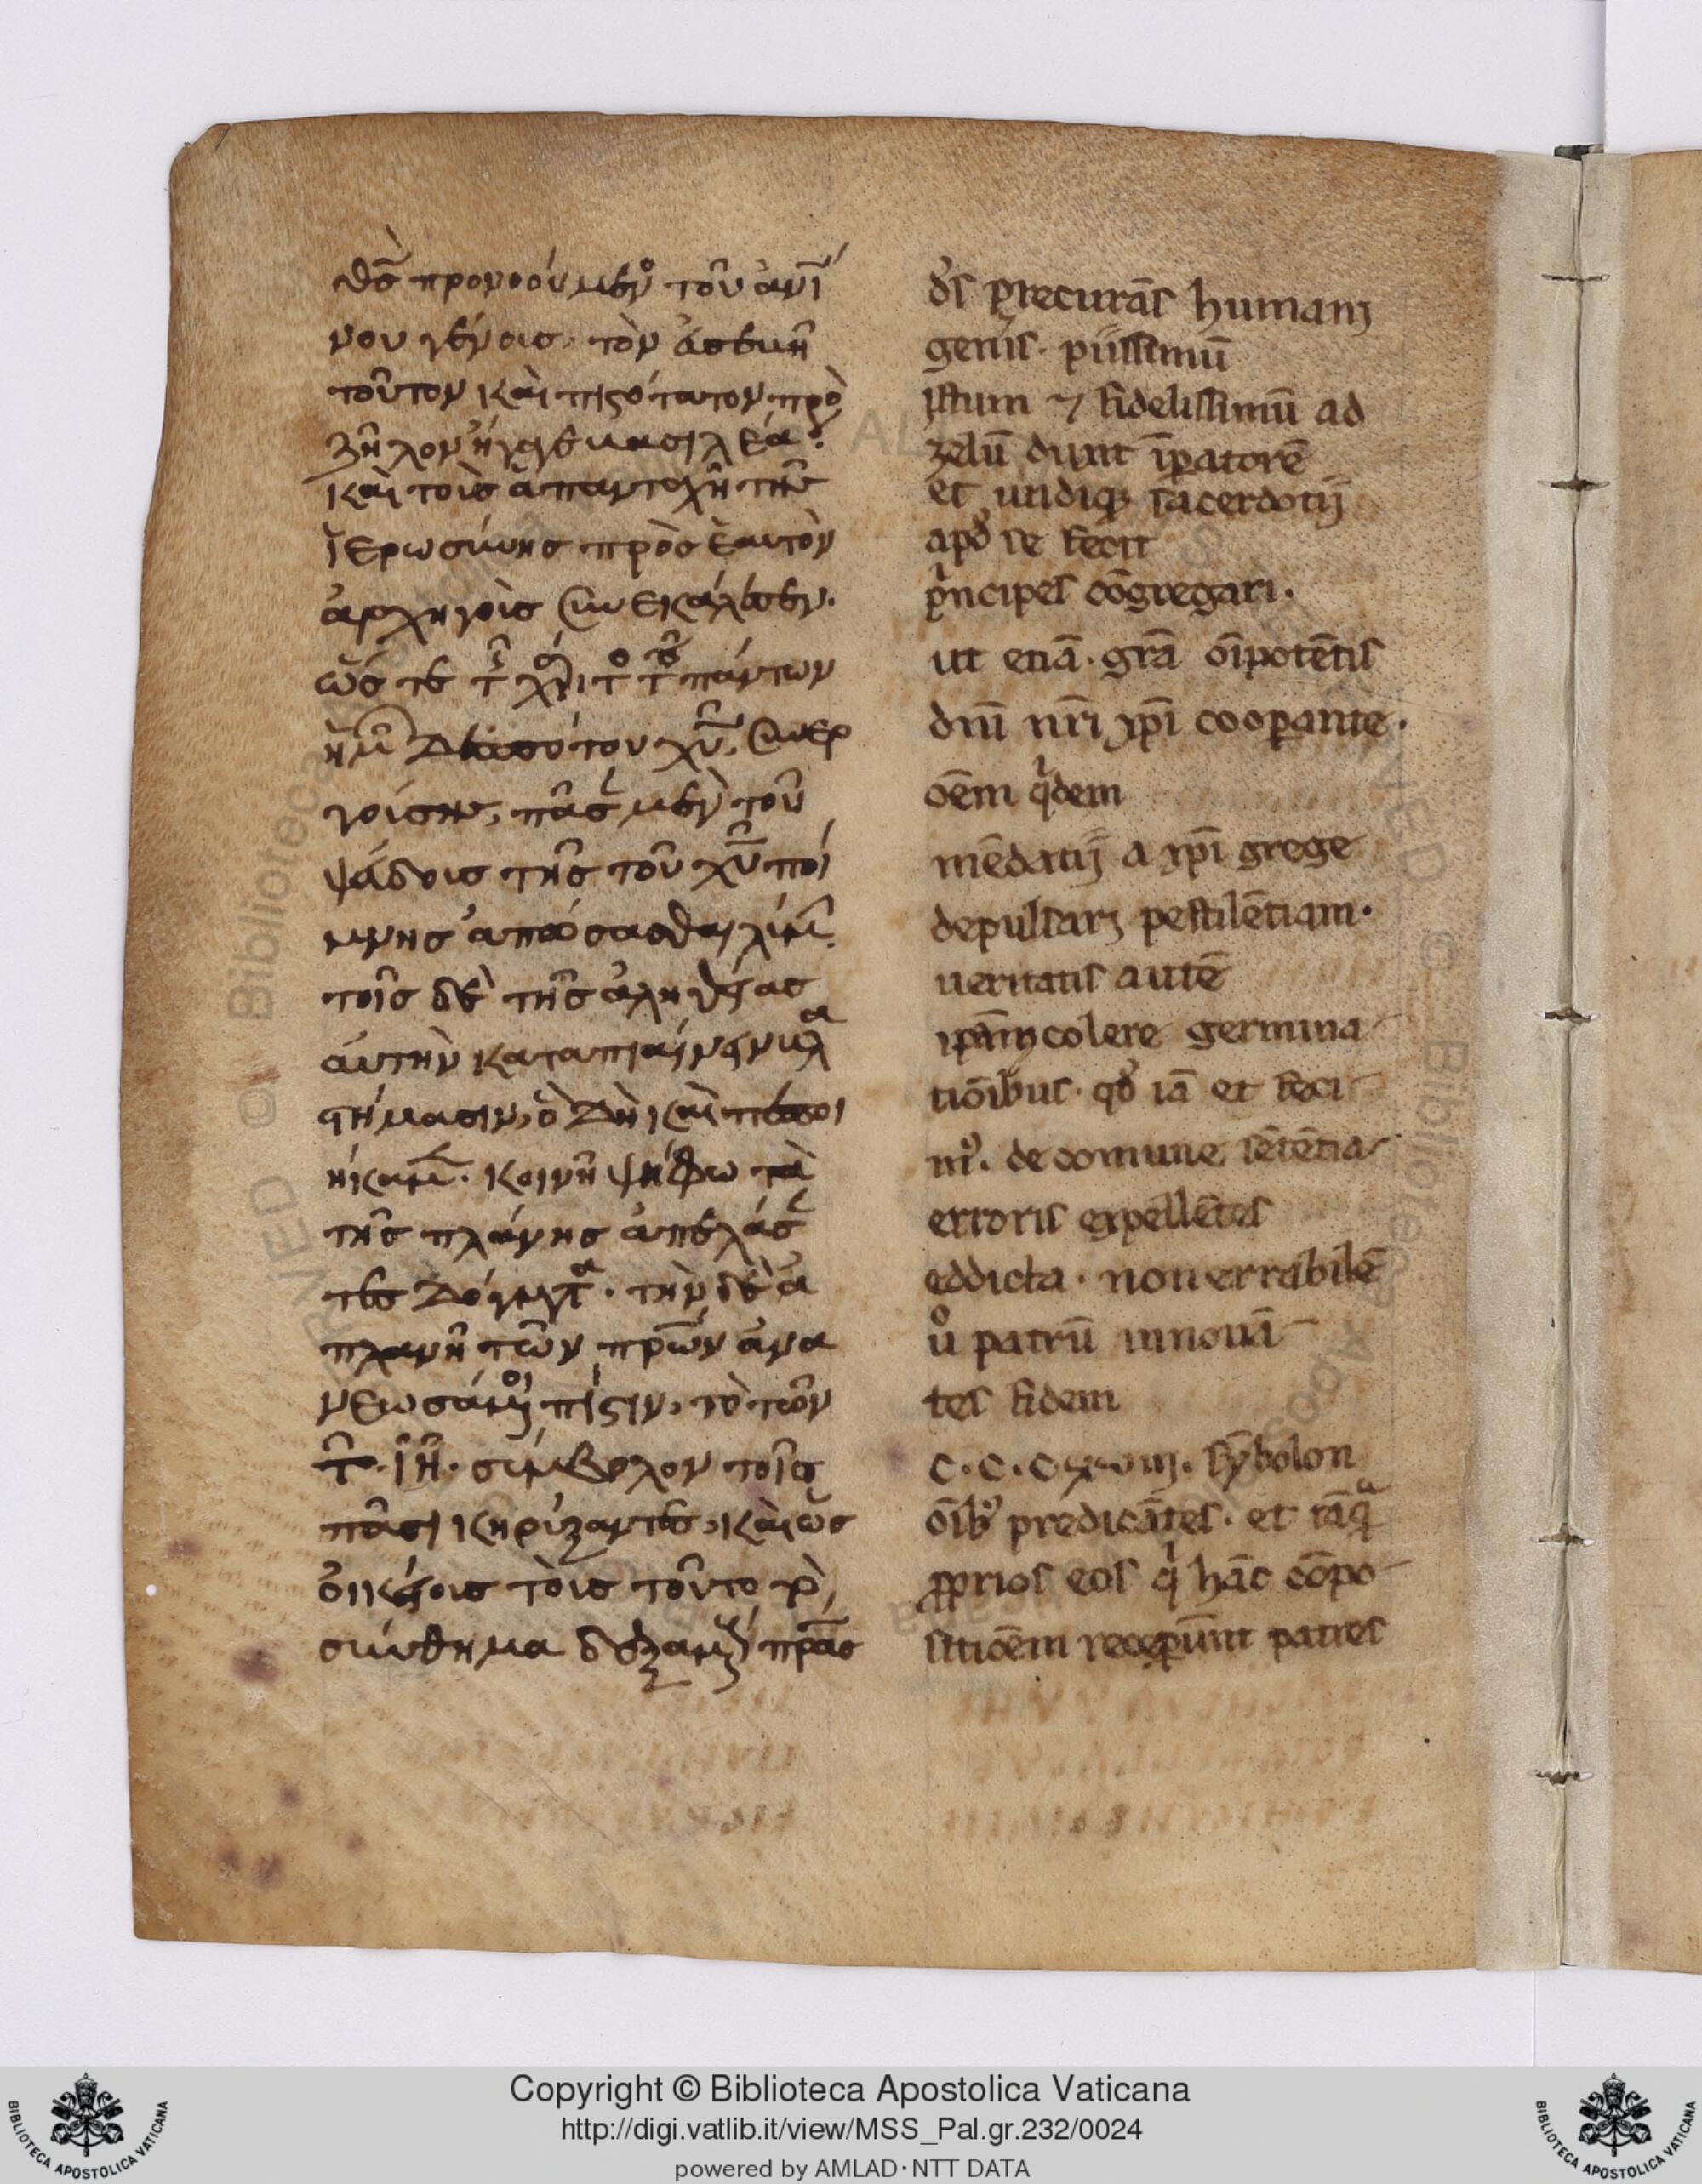 θς̄ προνοούμεν τοῦ ἀνί
νου γένοισ· τὸν ἀσεβῆ
τοῦτον καὶ πιστότατον πρὸ
ζῆλον ἤγαγε βασιλέα·
καὶ τοῖσ ἁπανταχῆ τῆσ
ἱερωσύνησ πρὸσ ἑαυτὸν
ἀρχηγοὶσ συνεκάλεσεν·
πάντων
χῦ, συνερ
γούσησ, πᾶσ μὲν τοῦ
ψεύδοισ τῆσ τοῦ χῦ ποί
μνησ ἀπώσασθαι λύμ.
τοῖσ δὲ τῆσ ἀληθείασ
αὐτὴν καταπιαίνειν βλα
στήμασιν, ὃ δὴ καὶ πεποι
ήκαμ. κοινῆ ψήφω τὰ
τῆσ πλάνησ ἀπελάσ
τεσ δόγματ. τὴν δὲ ἀ
πλανῆ τῶν πρω̄ν ἀνα
νεωσάμοι πίστιν, τὸ τῶν
τ. ιη. σύμβολον τοῖσ
πᾶσι κηρύξαντεσ, καὶ ὡσ
οἰκείοισ τοὶσ τοῦτο τὸ
σύνθημα δεξαμ πρᾱσ
ds p̱recurās humanꝫ
genus· piissimū
istum ⁊ fidelissimū ad
zelū duxit ip̄atorē
et undiqꝫ sacerdotij
apd̛ se fecit
principes cōgregari·
ut etiā· grā oīpotētis
dnī nrī xpī coop̱ante·
oēm qⁱdem
mēdatij a xpī grege
depulsarꝫ pestilētiam·
ueritatis autē
ipāmꝫ colere germina-
tiōibus· qd̛ iā et feci-
mꝰ. de comune sētētia-
erroris expellētes
eddicta· non errabilē
uº patrū innouā-
tes fidem
c·c·c·xviij· sȳbolon
oībꝰ predicātes· et tāqᵃ
ꝓprios eos qⁱ hāc cōpo-
sitioēm recep̱unt patres
Copyright © Biblioteca Apostolica Vaticana
http://digi.vatlib.it/view/MSS_Pal.gr.232/0024
powered by AMLAD·NTT DATA
BIBLIOTECA APOSTOLICA VATICANA
BIBLIOTECA APOSTOLICA VATICANA